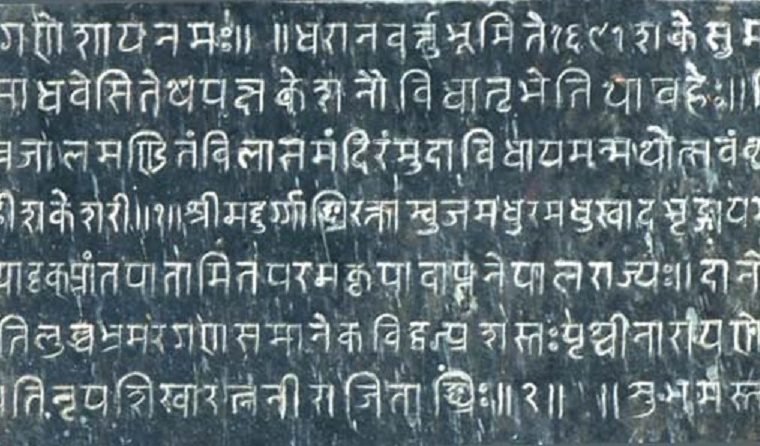 गणेशायनमः॥ ॥धरानवर्त्तुभूमिते१६९१शकेसुम
माधवेसितेथपक्षकेशनौविधातृभेतिथावहेः॥
जालमण्डितंविलासमंदिरंमुदाविधायमन्मथोत्सवं
हीशकेशरी॥१॥श्रीमद्दुर्गाङ्घ्रिरक्ताम्बुजमधुरमधुस्वादभृङ्गायम
प्रांतपातामितपरमकृपावाप्तनेपालराज्यः॥दानो
तिलुब्धभ्रमरगणसमानेकविद्वत्प्रशस्तःपृथ्वीनारायणो
पतिनृपशिखारत्ननीराजिताङ्घ्रिः॥२॥ ॥शुभमस्त